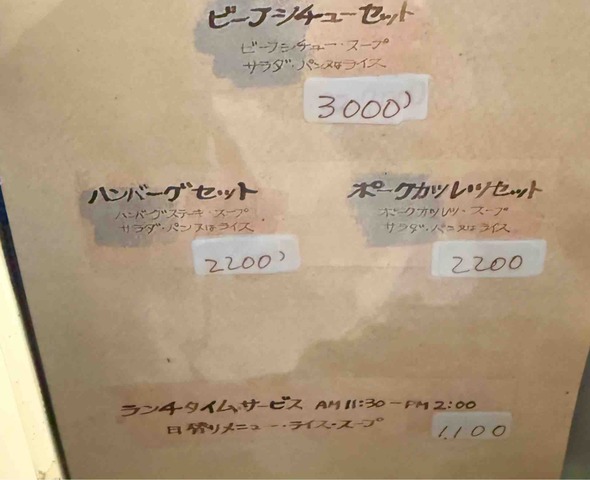 ビーフシチューセット
ビーフシチュー・スープ
サラダ・パン又はライス
3000
ハンバーグセット
ハンバーグステーキ・スープ
サラダ・パン又はライス
2200
ポークカツレツセット
ポークカツレツ・スープ
サラダ・パン又はライス
2200
ランチタイムサービス AM 11:30-PM 2:00
日替りメニュー・ライス・スープ
1,100